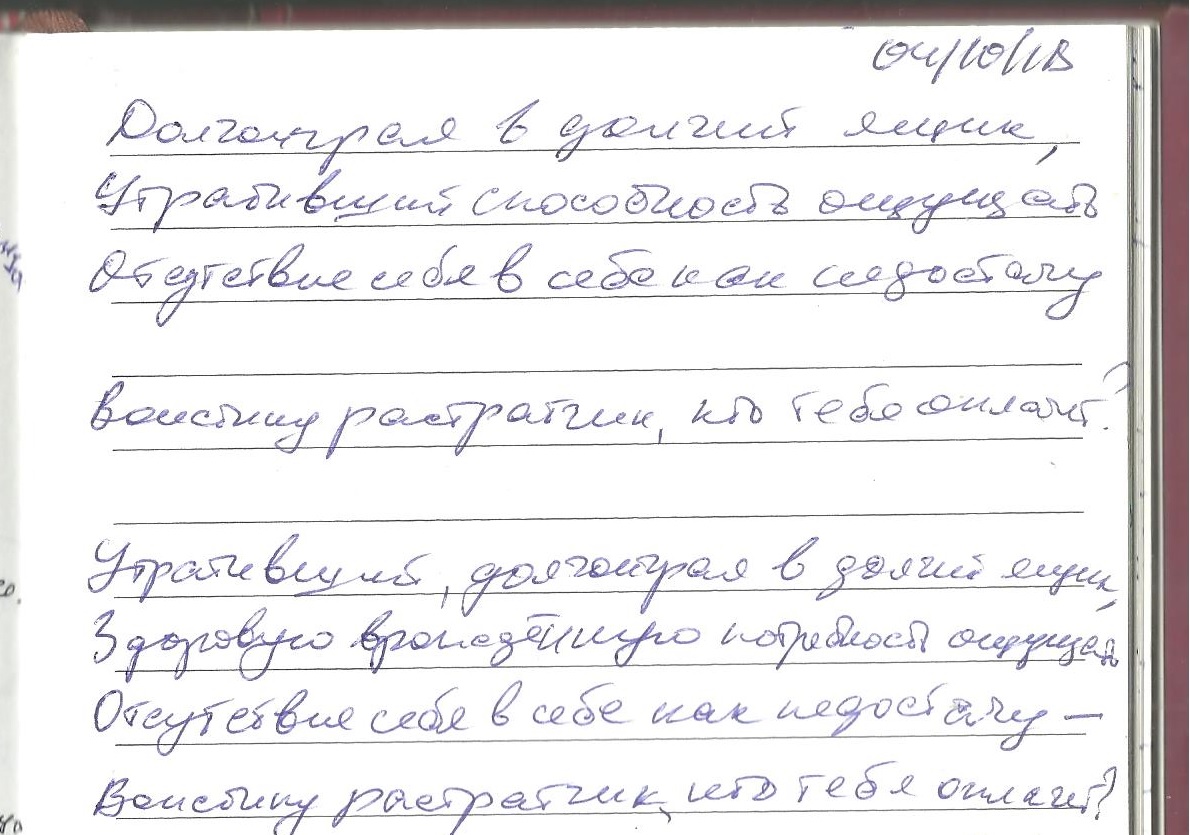 04/10/18
Долгоиграя в долгий ящик,
Утративший способность ощущать
Отсутствие себя в себе как недостачу
Воистину растратчик, кто тебя оплатит?
Утративший, долгоиграя в долгий ящик,
Здоровую врождённую потребность ощущать
Отсутствие себя в себе как недостачу —
Воистину растратчик, кто тебя оплачет?